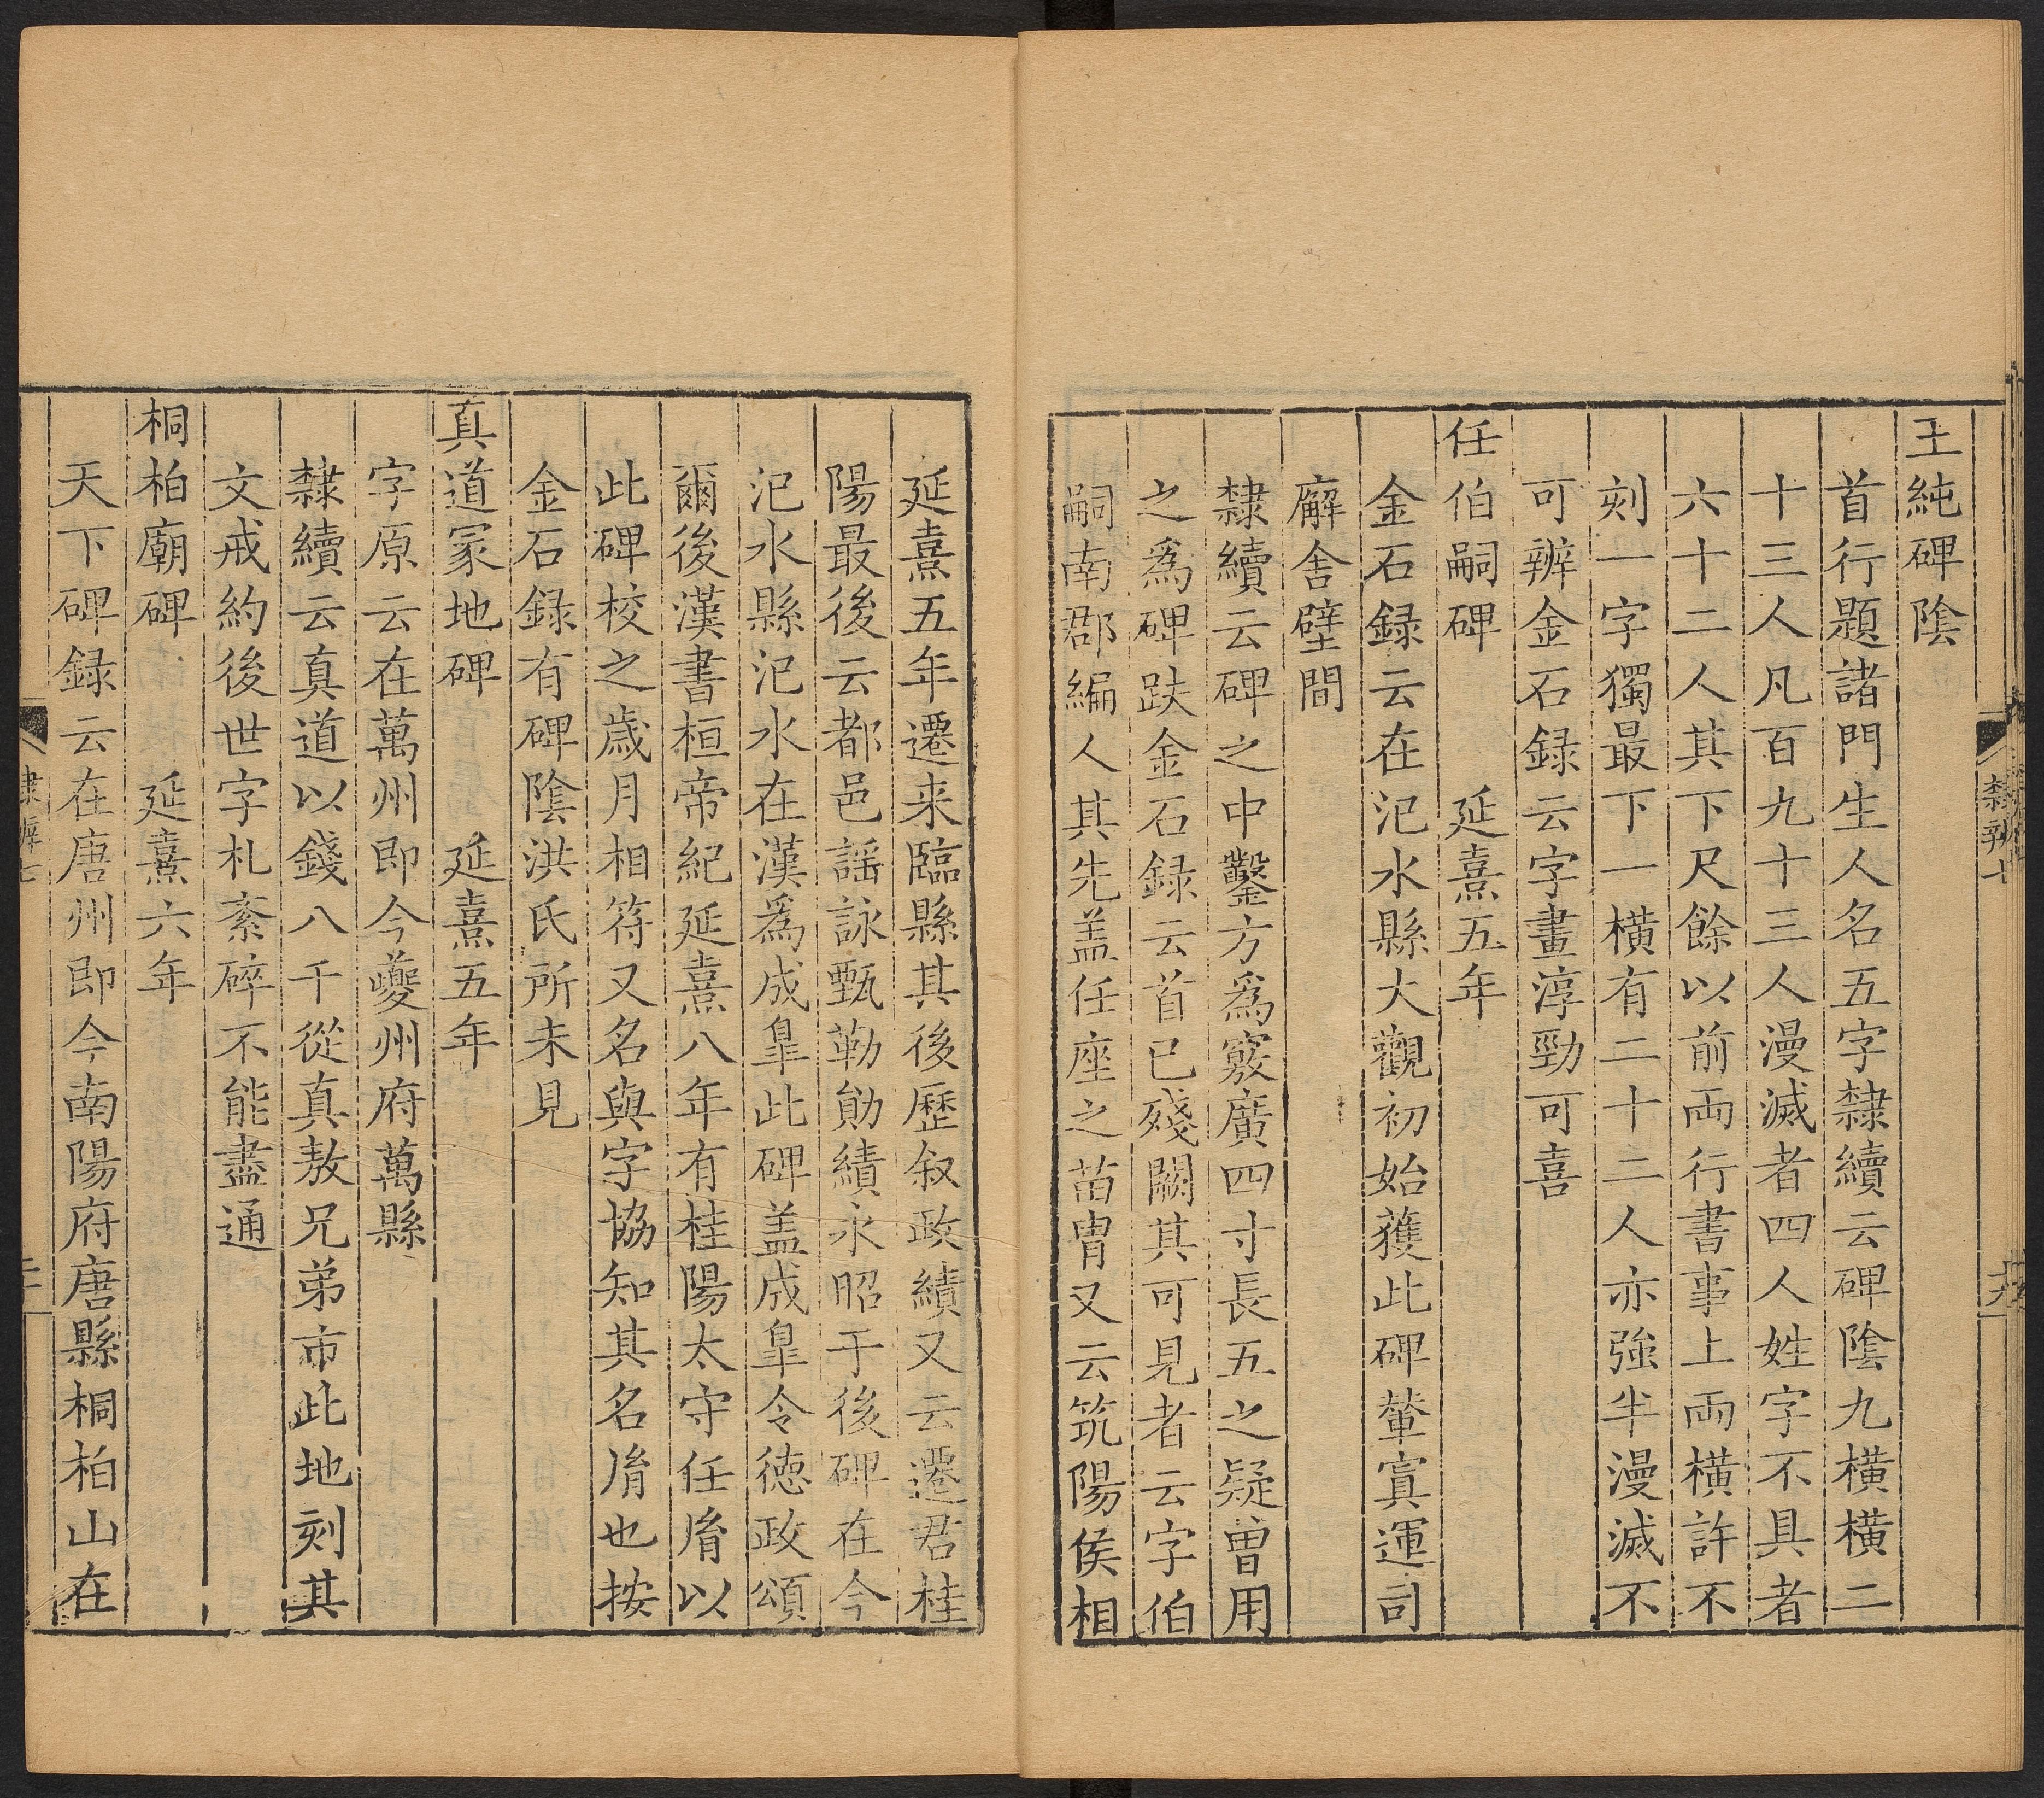 王純碑陰
首行題諸門生人名五字隸續云碑陰九橫橫二
十三人凡百九十三人漫滅者四人姓字不具者
六十二人其下尺餘以前兩行書事上兩橫許不
刻一字獨最下一橫有二十二人亦強半漫滅不
可辨金石録云字畫淳勁可喜
任伯嗣碑 延熹五年
金石録云在汜水縣大觀初始獲此碑輦寘運司
廨舍壁間
隸續云碑之中鑿方為竅廣四寸長五之疑曽用
之為碑趺金石録云首已殘闕其可見者云字伯
嗣南郡編人其先盖任座之苗胄又云筑陽侯相
延熹五年遷来臨縣其後歷叙政績又云遷君桂
陽最後云都邑謡詠甄勒勛績永昭于後碑在今
汜水縣汜水在漢為成臯此碑盖成臯令徳政頌
爾後漢書桓帝紀延熹八年有桂陽太守任胤以
此碑校之歲月相符又名與字協知其名胤也按
金石録有碑陰洪氏所未見
真道冡地碑 延熹五年
字原云在萬州即今夔州府萬縣
隸續云真道以錢八千從真敖兄弟市此地刻其
文戒約後世字札紊碎不能盡通
桐柏廟碑 延熹六年
天下碑録云在唐州即今南陽府唐縣桐柏山在
隸辨七